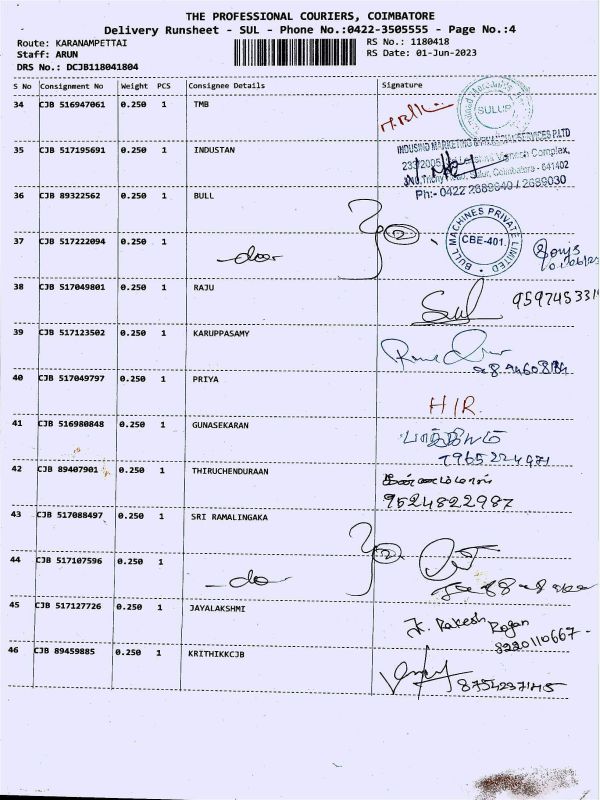 THE PROFESSIONAL COURIERS, COIMBATORE
Delivery Runsheet - SUL - Phone No.:0422-3505555 - Page No.:4
Route: KARANAMPETTAI RS No.: 1180418
Staff: ARUN RS Date: 01-Jun-2023
DRS No.: DCJB118041804
S No Consignment No Weight PCS Consignee Details Signature
34 CJB 516947061 0.250 1 TMB
SULUR
35 CJB 517195691 0.250 1 INDUSTAN
INDUSIND MARKETING & FINANCIAL SERVICES P.LTD
Complex,
Sulur, Coimbatore - 641402
Ph:- 0422 2689640 / 2689030
36 CJB 89322562 0.250 1 BULL
BULL MACHINES PRIVATE LIMITED
CBE-401.
37 CJB 517222094 0.250 1
38 CJB 517049801 0.250 1 RAJU
39 CJB 517123502 0.250 1 KARUPPASAMY
40 CJB 517049797 0.250 1 PRIYA
H/R
41 CJB 516980848 0.250 1 GUNASEKARAN
42 CJB 89407901 0.250 1 THIRUCHENDURAAN
9524822987
43 CJB 517088497 0.250 1 SRI RAMALINGAKA
44 CJB 517107596 0.250 1
45 CJB 517127726 0.250 1 JAYALAKSHMI
K. Rakesh Rogan
8220110667-
46 CJB 89459885 0.250 1 KRITHIKKCJB